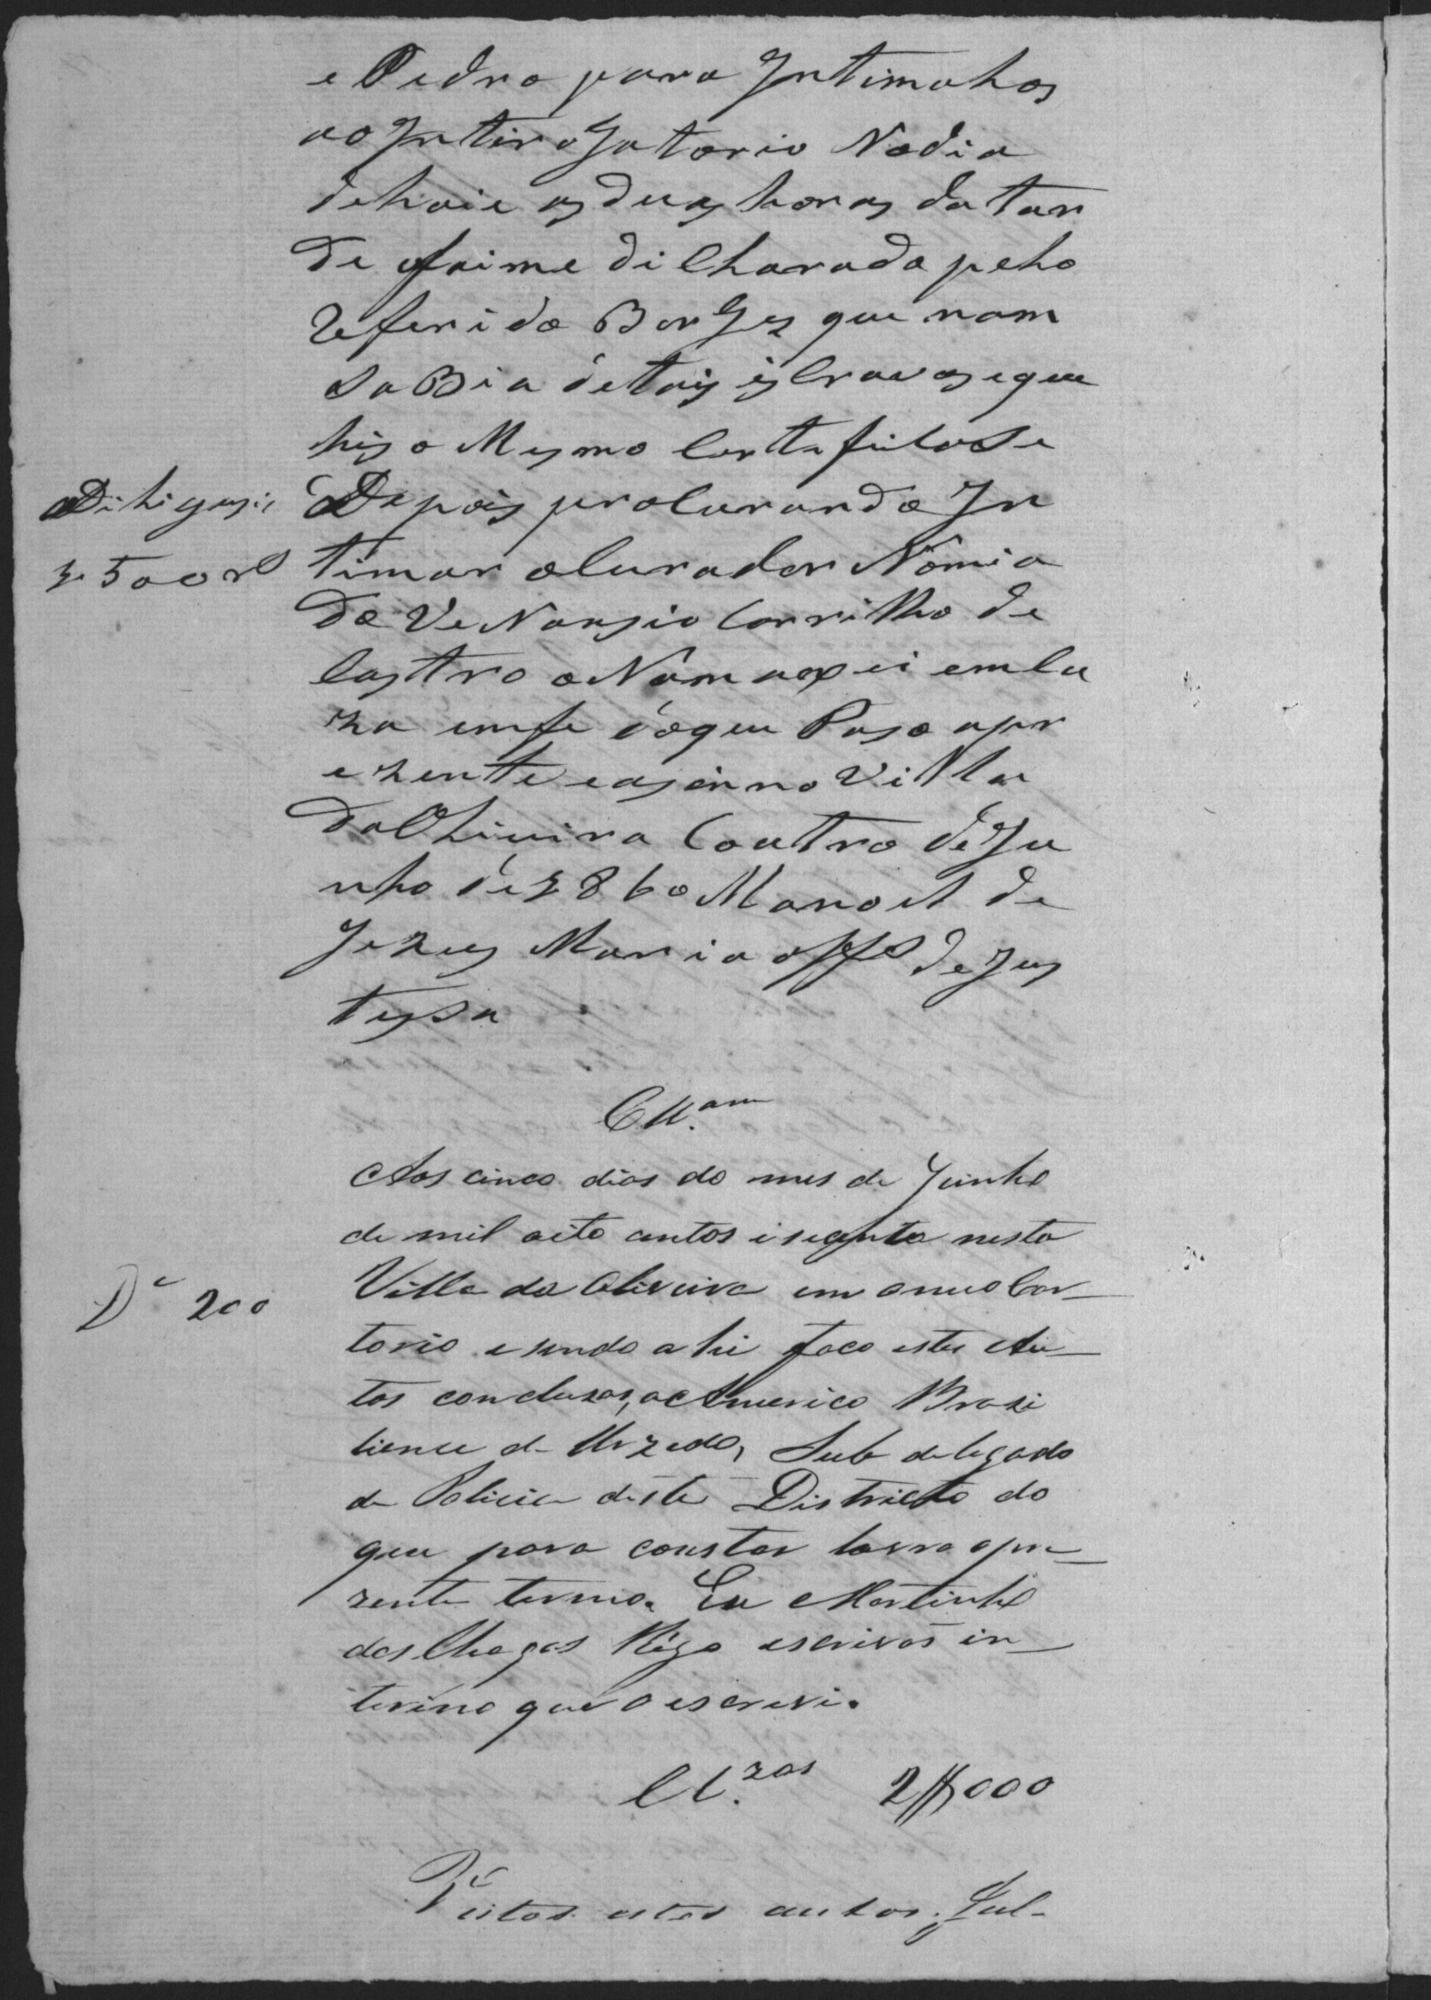 e Pedro para Intimahos
ao Intirogatorio Nodia
dehoie as duas horas da tar
de foime dicharado peho
Referido Borges que nam
saBia de tais iscravos e que
his o Mesmo Certefico e
Dihigensia
Depois procurando In
3500 rs
timar o Curador Nomia
do VeNansio Carrilho de
Castro o Nam axei em Ca
za em fe do que Paso a pr
ezente easinno Villa
da Ohiveira Coatro de Ju
nho de 1860 Manoel de
Jezus Maria offal de Jus
tissa
Cll.am
Aos cinco dias do mes de Junho
de mil oito centos i secenta nesta
Villa da Oliveira em o meo Car-
Dé 200
torio e sendo a hi faco estes Au-
tos concluzos, a Americo Brazi
lience de Uzeda, Sub delegado
de Policia deste Districto do
que para constar lavro o pre-
zente termo. Eu Martinho
das Chagas Rigo escrivão in-
terino que o escrevi.
Cl.zos 2$000
Vistos estes autos. Jul-